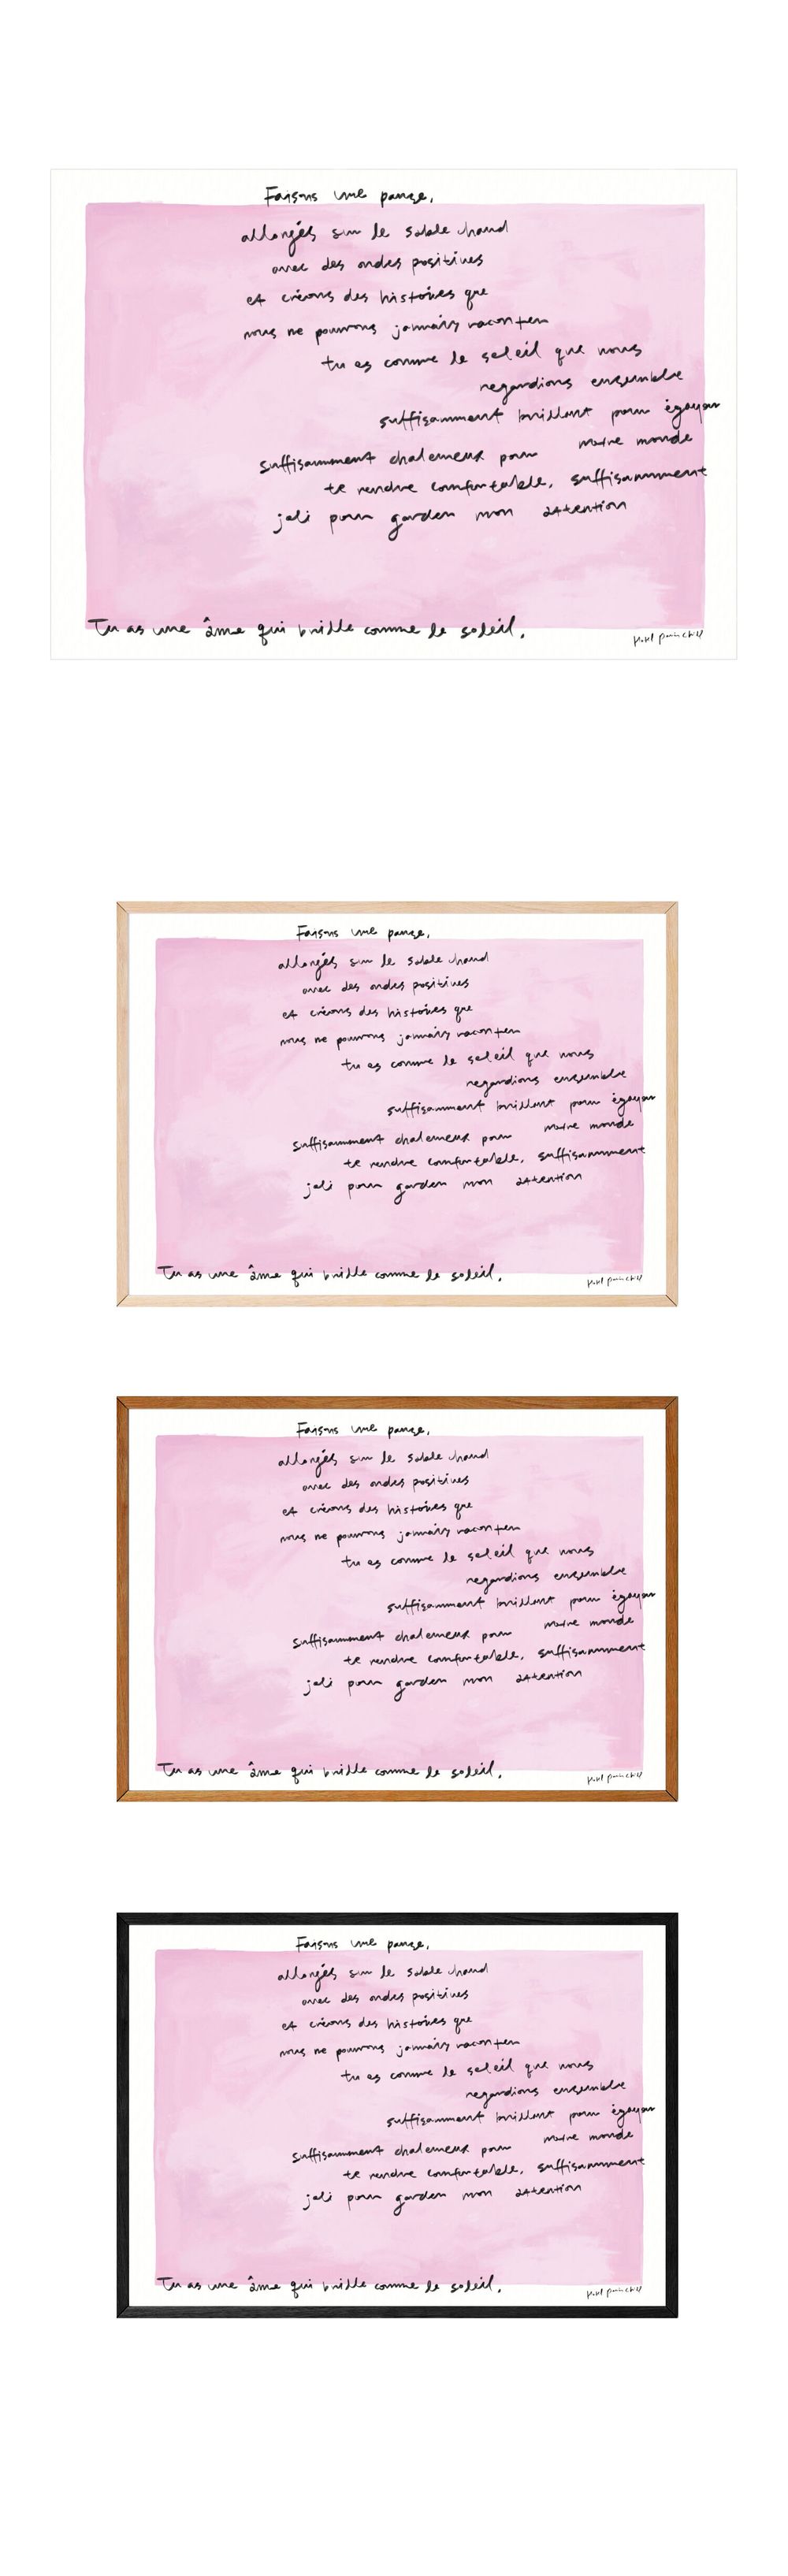 Faisons une pause,
allongés sur le sable chaud
avec des ondes positives
et créons des histoires que
nous ne pourrons jamais raconter
tu es comme le soleil que nous
regardions ensemble
suffisamment brillant pour égayer
notre monde
suffisamment chaleureux pour
te rendre confortable, suffisamment
joli pour garder mon attention
Tu as une âme qui brille comme le soleil.
Faisons une pause,
allongés sur le sable chaud
avec des ondes positives
et créons des histoires que
nous ne pourrons jamais raconter
tu es comme le soleil que nous
regardions ensemble
suffisamment brillant pour égayer
notre monde
suffisamment chaleureux pour
te rendre confortable, suffisamment
joli pour garder mon attention
Tu as une âme qui brille comme le soleil.
Faisons une pause,
allongés sur le sable chaud
avec des ondes positives
et créons des histoires que
nous ne pourrons jamais raconter
tu es comme le soleil que nous
regardions ensemble
suffisamment brillant pour égayer
notre monde
suffisamment chaleureux pour
te rendre confortable, suffisamment
joli pour garder mon attention
Tu as une âme qui brille comme le soleil.
Faisons une pause,
allongés sur le sable chaud
avec des ondes positives
et créons des histoires que
nous ne pourrons jamais raconter
tu es comme le soleil que nous
regardions ensemble
suffisamment brillant pour égayer
notre monde
suffisamment chaleureux pour
te rendre confortable, suffisamment
joli pour garder mon attention
Tu as une âme qui brille comme le soleil.